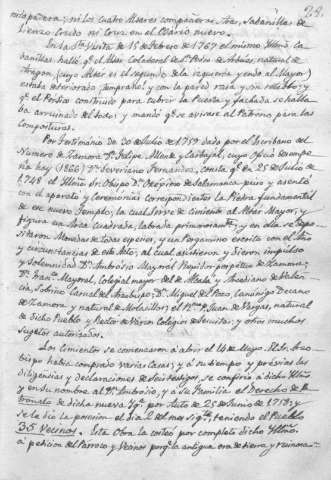 28.
ni los cuatro Altares compañeros, Aras, Sabanillas de
Lienzo Crudo ni Cruz en el Osario nuevo.
En la Sta. Visita de 15 de Febrero de 1767 el mismo Yltmo.
halló q.e el Altar Colateral de Sn. Pedro de Arbúes, natural de
Aragon, (cuyo Altar es el segundo de la izquierda yendo al Mayor)
estaba deteriorado, y con la pared rasa y sin retablo; y
q.e el Portico construido para cubrir la Puerta y fachada se halla
ha arruinado del todo; y mandó q.e se avisase al Patrono para las
composturas.
Por Testimonio de 30 de Julio de 1759 dado por el Escribano del
Número de Zamora Dn. Felipe y Carbajal, cuyo Oficio desempe
ña hoy (1866) Dn. Severiano Fernandez, consta q.e en 25 de Julio de
1748 el Yltmo. Sr. Obispo Dn. de Salamanca puso y asentó
con el aparato y Ceremonias correspondientes la Piedra fundamental
de ese nuevo Templo, la cual sirve de cimiento al Altar Mayor, y
figura un Arca cuadrada, labrada primorosamente; y en ella se depo
sitaron Monedas de todas especies, y un Pergamino escrito con el Año
y circunstancias de este Acto, al cual asistieron y dieron impulso
y solemnidad Dn. Ambrosio Mayoral Regidor perpetuo de Zamora;
Dn. Fran.co Mayoral, Colegial mayor del de Alcalá y Arcediano de
Sobrino Carnal del Arzobispo; Dn. Miguel del Pozo, Canónigo Decano
de Zamora y natural de Molacillos; el Dn. Juan de Vargas, natural
de dicho Pueblo y Rector de Varios Colegios de Jesuitas; y otros muchos
Sugetos autorizados.
Los Cimientos se comenzaron á abrir el 14 de Mayo. El Sr. Arzo
bispo habia comprado varias Casas; y á su tiempo y prévias las
diligencias y declaraciones de Seis testigos, se confirió á dicho Yltmo.
y en su nombre al Dn. Ambrosio, y á su Familia el Derecho de Pa
tronato de dicha nueva Yg.a por Auto de 25 de Junio de 1713; y
se le dió la posesion el dia 2 del mes sig.te, teniendo el Pueblo
35 Vecinos. Esta Obra la costeó por completo dicho Yltmo.
á petición del Párroco y Vecinos porq.e la antigua era de tierra y ruinosa